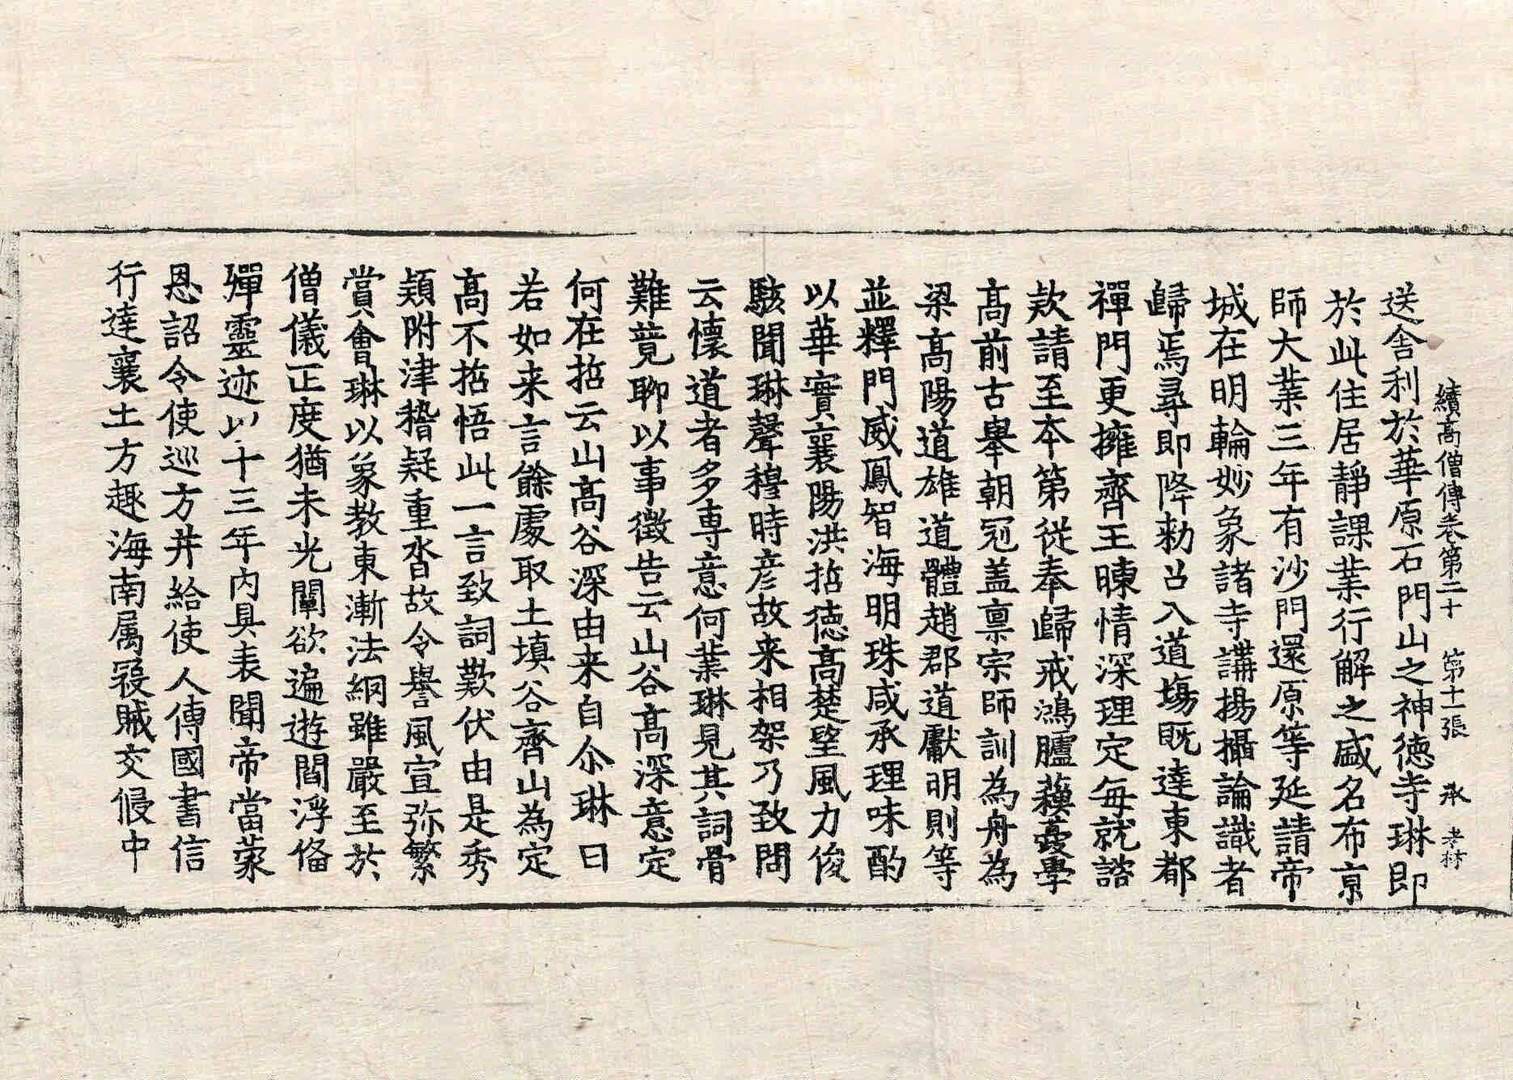 續高僧傳卷第二十 第十一張 承 老村
送舍利於華原石門山之神德寺琳即
於此住居靜課業行解之盛名布京
師大業三年有沙門還原等延請帝
城在明輪妙象諸寺講揚攝論識者
歸焉尋即降勑召入道塲既達東都
禪門更擁齊王暕情深理定每就諮
欵請至本第從奉歸戒鴻臚蘓夔學
高前古舉朝冠盖禀宗師訓為舟為
梁高陽道雄道體趙郡道獻明則等
並釋門威鳳智海明珠咸承理味酌
以華實襄陽洪哲德高楚望風力俊
駭聞琳聲穆時彦故来相架乃致問
云懷道者多專意何業琳見其詞骨
難竟聊以事徵告云山谷高深意定
何在哲云山高谷深由来自尒琳曰
若如来言餘處取土填谷齊山為定
高不哲悟此一言致詞歎伏由是秀
穎附津稽疑重沓故令譽風宣弥繁
賞會琳以象教東漸法網雖嚴至於
僧儀正度猶未光闡欲遍遊閻浮備
殫靈迹以十三年內具表聞帝當蒙
恩詔令使巡方并給使人傳國書信
行達襄土方趣海南属寇賊交侵中